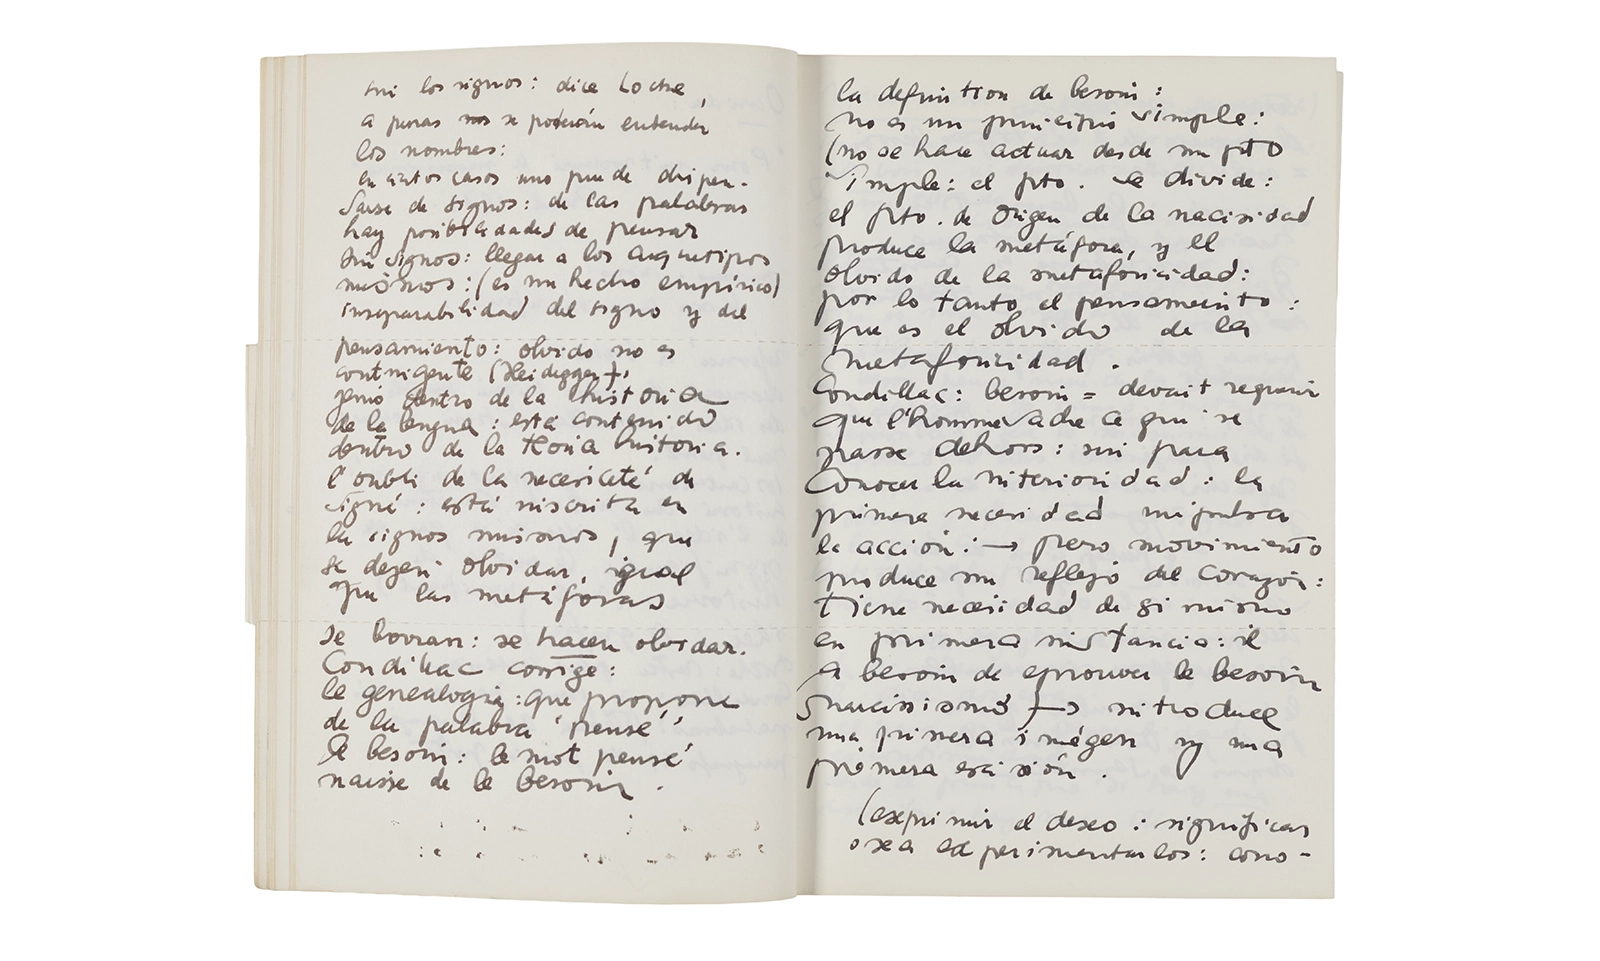 sin los signos: dice Locke,
a penas nos se poderán entender
los nombres:
en ciertos casos uno puede dispen-
sarse de signos: de las palabras
hay posibilidades de pensar
sin signos: llegar a los arquetipos
mismos: (es un hecho empírico)
inseparabilidad del signo y del
pensamiento: olvido no es
contingente (Heidegger),
dentro de la historia
de la lengua: está contenido
dentro de la teoria historia.
l'oubli de la necesicté du
signé: está inscrita en
la signos mismos, que
se dejen olvidar, igual
que las metáforas
se borran: se hacen olvidar.
Condillac corrige:
le genealogia: que propone
de la palabra 'pensé''
le besoin: le mot pensé
naisse de le besoin.
la definition de besoin:
no es un principio simple:
(no se hace actuar desde un pto
simple: el pto. se divide:
el pto. de origen de la nacisidad
produce la metáfora, y el
olvido de la metaforicidad:
por lo tanto el pensamiento:
que es el olvido de la
metaforicidad.
Condillac: besoin = devait requerir
que l'homme sache ce qui se
passe dehors: sin para
conocer la interioridad: la
primera necesidad impulsa
la acción: → pero movimiento
produce un reflejo del corazón:
tiene necesidad de si mismo
en primera instancia: il
a besoin de eprouver le besoin
(narcissismo) → introduce
una primera imágen y una
primera escisión.
(exprimir el deseo: significar
o sea experimentarlos: cono-